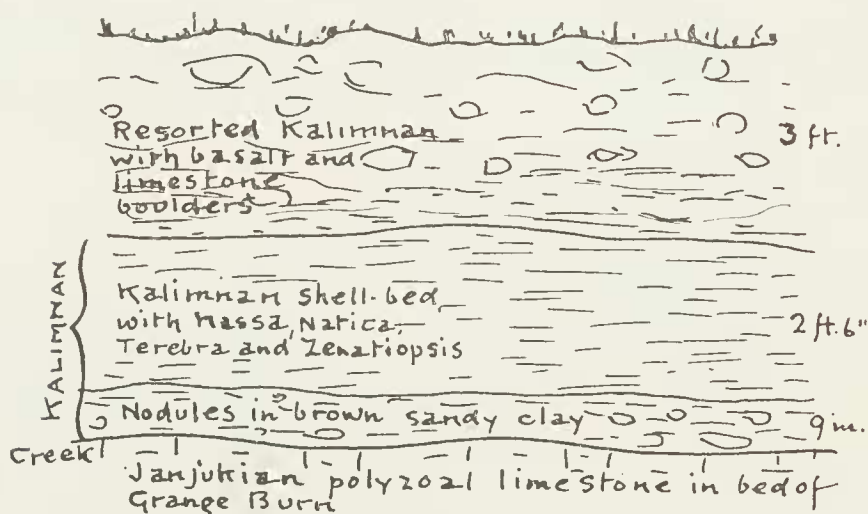 Resorted Kalimnan
with basalt and
limestone
boulders
3 ft.
KALIMNAN
Kalimnan Shell-bed
with Nassa, Natica,
Terebra and Zenatiopsis
2 ft. 6"
Nodules in brown sandy clay
9 in.
Creek
Janjukian polyzoal limestone in bed of
Grange Burn